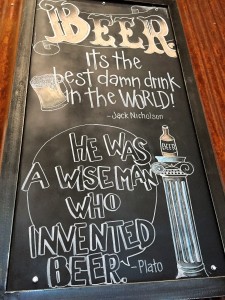 BEER
It's the
best damn drink
in the WORLD!
- Jack Nicholson
HE WAS
A WISE MAN
WHO
INVENTED
BEER. - Plato
BEER